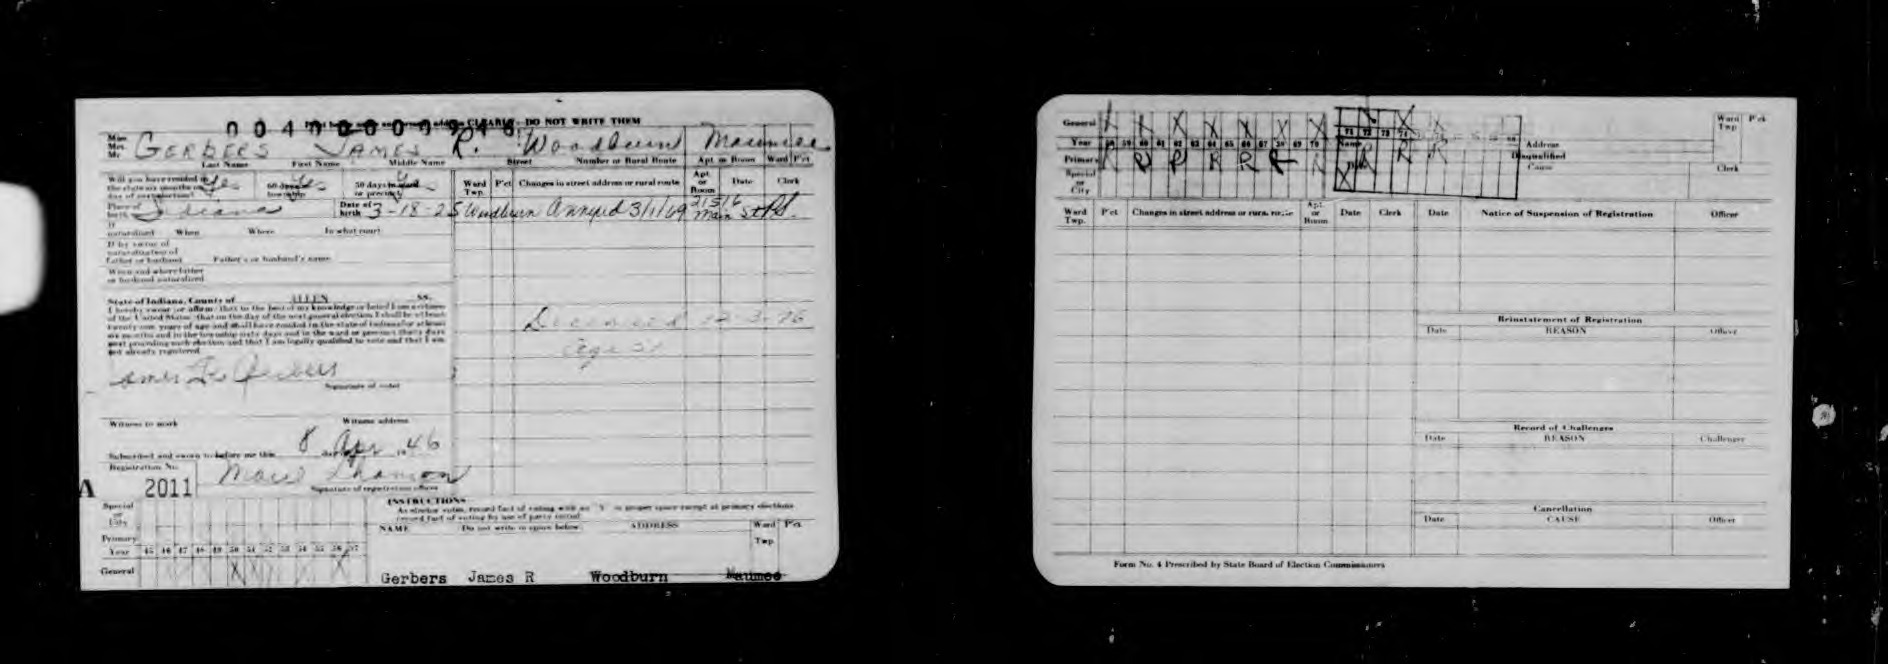 CLEARLY - DO NOT WRITE THEM
Miss
Mrs.
Mr. GERBERS JAMES R. Woodburn Maumee
Last Name First Name Middle Name Street Number or Rural Route Apt. or Room Ward P'ct
Will you have resided in the state six months on day of next election? Yes 60 days in township Yes 30 days in ward or precinct Yes
Place of birth Indiana Date of birth 3-18-25
If naturalized When Where In what court
If by virtue of naturalization of Father or husband Father's or husband's name
When and where father or husband naturalized
State of Indiana, County of ALLEN ss.
I hereby swear (or affirm) that to the best of my knowledge or belief I am a citizen
of the United States; that on the day of the next general election I shall be at least
twenty-one years of age and shall have resided in the state of Indiana for at least
six months and in the township sixty days and in the ward or precinct thirty days
next preceding such election and that I am legally qualified to vote and that I am
not already registered.
James R. Gerbers
Signature of voter
Witness to mark Witness address
Subscribed and sworn to before me this 8 day of Apr 19 46
Registration No.
A 2011
Signature of registration officer
Ward Twp. P'ct Changes in street address or rural route Apt. or Room Date Clerk
Woodburn Annexed 3/1/69 21516 Main St
Deceased 12-3-76
Age 51
Special or City
Primary
Year 45 46 47 48 49 50 51 52 53 54 55 56 57
General X X
INSTRUCTIONS
As elector votes, record fact of voting with an "X" in proper space except at primary elections
record fact of voting by use of party initial.
NAME (Do not write in space below) ADDRESS Ward Twp. P'ct.
Gerbers James R Woodburn Maumee
General X X X X X X X X X
Year 58 59 60 61 62 63 64 65 66 67 68 69 70 71 72 73 74
Primary R R R R R R R R R R
Special or City X
Name Address
Disqualified
Cause
Ward Twp P'ct
Clerk
Ward Twp. P'ct Changes in street address or rural route Apt. or Room Date Clerk
Date Notice of Suspension of Registration Officer
Reinstatement of Registration
Date REASON Officer
Record of Challenges
Date REASON Challenger
Cancellation
Date CAUSE Officer
Form No. 4 Prescribed by State Board of Election Commissioners